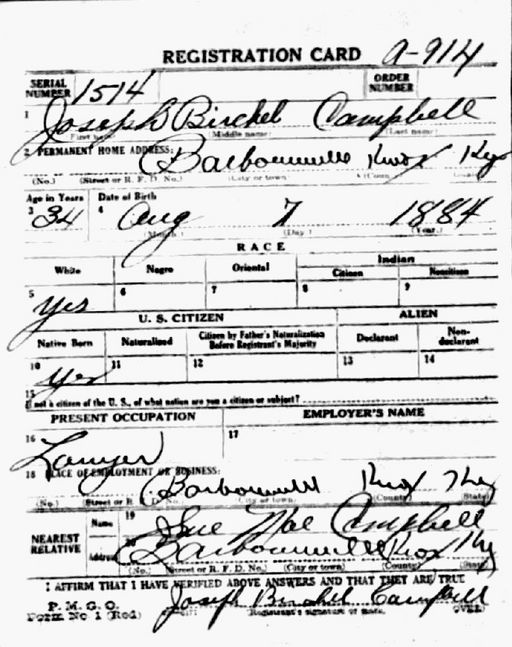 REGISTRATION CARD A-914
SERIAL NUMBER 1514 ORDER NUMBER
1 Joseph Birchel Campbell
First name Middle name Last name
2 PERMANENT HOME ADDRESS: Barbourville Knox Ky
(No.) (Street or R. F. D. No.) (City or town) (County)
Age in Years Date of Birth
3 34 4 Aug 7 1884
(Month) (Day) (Year.)
RACE
White Negro Oriental Indian
Citizen Noncitizen
5 Yes 6 7 8 9
U. S. CITIZEN ALIEN
Native Born Naturalized Citizen by Father's Naturalization Before Registrant's Majority Declarant Non-declarant
10 Yes 11 12 13 14
15 If not a citizen of the U. S., of what nation are you a citizen or subject?
PRESENT OCCUPATION EMPLOYER'S NAME
16 Lawyer 17
18 PLACE OF EMPLOYMENT OR BUSINESS:
Barbourville Knox Ky
(No.) (Street or R. F. D. No.) (City or town) (County) (State)
NEAREST RELATIVE Name 19 Sue Mae Campbell
Address 20 Barbourville Knox Ky
(No.) (Street or R. F. D. No.) (City or town) (County) (State)
I AFFIRM THAT I HAVE VERIFIED ABOVE ANSWERS AND THAT THEY ARE TRUE
P. M. G. O.
Form No 1 (Red) Joseph Birchel Campbell
(Registrant's signature or mark) (OVER)